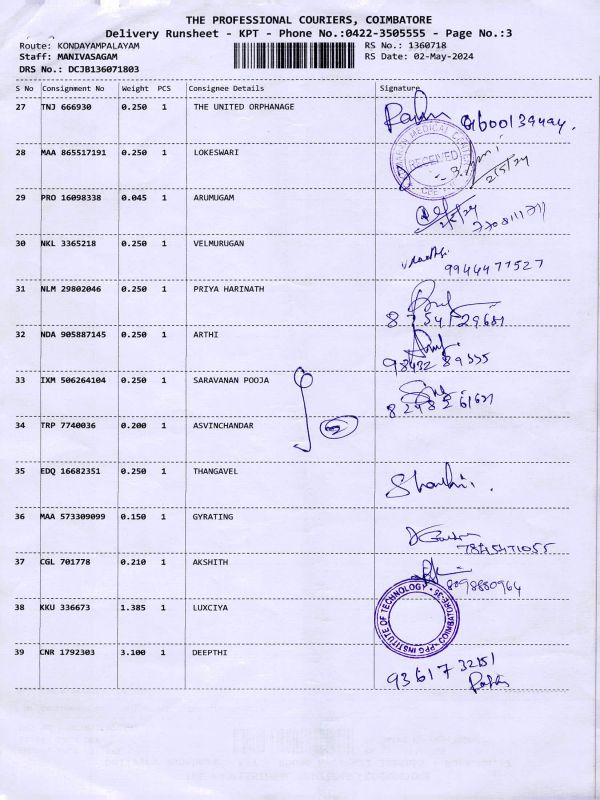 THE PROFESSIONAL COURIERS, COIMBATORE
Delivery Runsheet - KPT - Phone No.:0422-3505555 - Page No.:3
Route: KONDAYAMPALAYAM RS No.: 1360718
Staff: MANIVASAGAM RS Date: 02-May-2024
DRS No.: DCJB136071803
S No Consignment No Weight PCS Consignee Details Signature
27 TNJ 666930 0.250 1 THE UNITED ORPHANAGE
28 MAA 865517191 0.250 1 LOKESWARI
RECEIVED
2/5/24
29 PRO 16098338 0.045 1 ARUMUGAM
2/5/24
30 NKL 3365218 0.250 1 VELMURUGAN
9944477527
31 NLM 29802046 0.250 1 PRIYA HARINATH
32 NDA 905887145 0.250 1 ARTHI
33 IXM 506264104 0.250 1 SARAVANAN POOJA
34 TRP 7740036 0.200 1 ASVINCHANDAR
35 EDQ 16682351 0.250 1 THANGAVEL
36 MAA 573309099 0.150 1 GYRATING
7845471055
37 CGL 701778 0.210 1 AKSHITH
8098880964
38 KKU 336673 1.385 1 LUXCIYA
PPG INSTITUTE OF TECHNOLOGY COIMBATORE-35
39 CNR 1792303 3.100 1 DEEPTHI